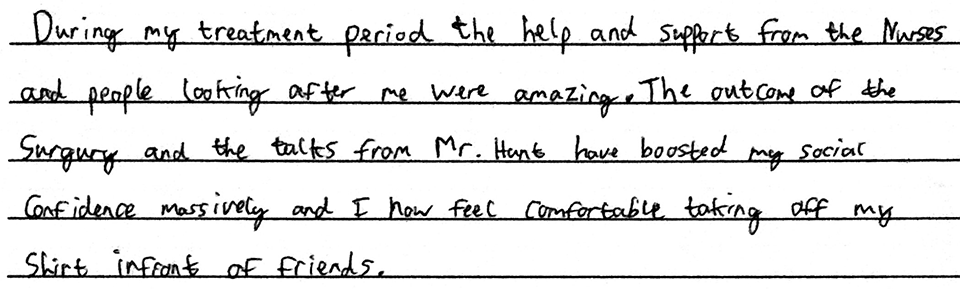 During my treatment period the help and support from the Nurses
and people looking after me were amazing. The outcome of the
Surgury and the talks from Mr. Hunt have boosted my social
Confidence massively and I now feel comfortable taking off my
Shirt infront of friends.